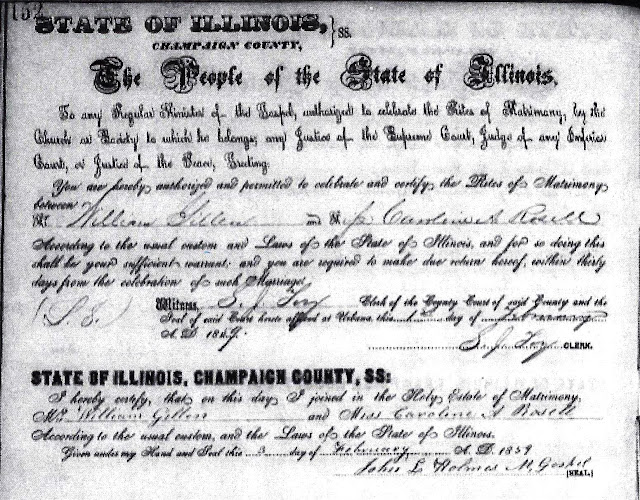 152
STATE OF ILLINOIS, } SS.
CHAMPAIGN COUNTY,
The People of the State of Illinois.
To any Regular Minister of the Gospel, authorized to celebrate the Rites of Matrimony, by the
Church or Society to which he belongs; any Justice of the Supreme Court, Judge of any Inferior
Court, or Justice of the Peace, Greeting:
You are hereby authorized and permitted to celebrate and certify the Rites of Matrimony
between
Mr William Gillen and Caroline A Rosell
According to the usual custom and Laws of the State of Illinois, and for so doing this
shall be your sufficient warrant; and you are required to make due return hereof, within thirty
days from the celebration of such Marriage.
(L.S.) Witness, Clerk of the County Court of said County and the
Seal of said Court hereto affixed at Urbana, this day of
A. D. 1859.
CLERK.
STATE OF ILLINOIS, CHAMPAIGN COUNTY, SS:
I hereby certify, that on this day I joined in the Holy Estate of Matrimony.
Mr William Gillen and Miss Caroline A Rosell
According to the usual custom, and the Laws of the State of Illinois.
Given under my Hand and Seal this 3 day of February A. D. 1859
John L Holmes M. Gospel
[SEAL.]